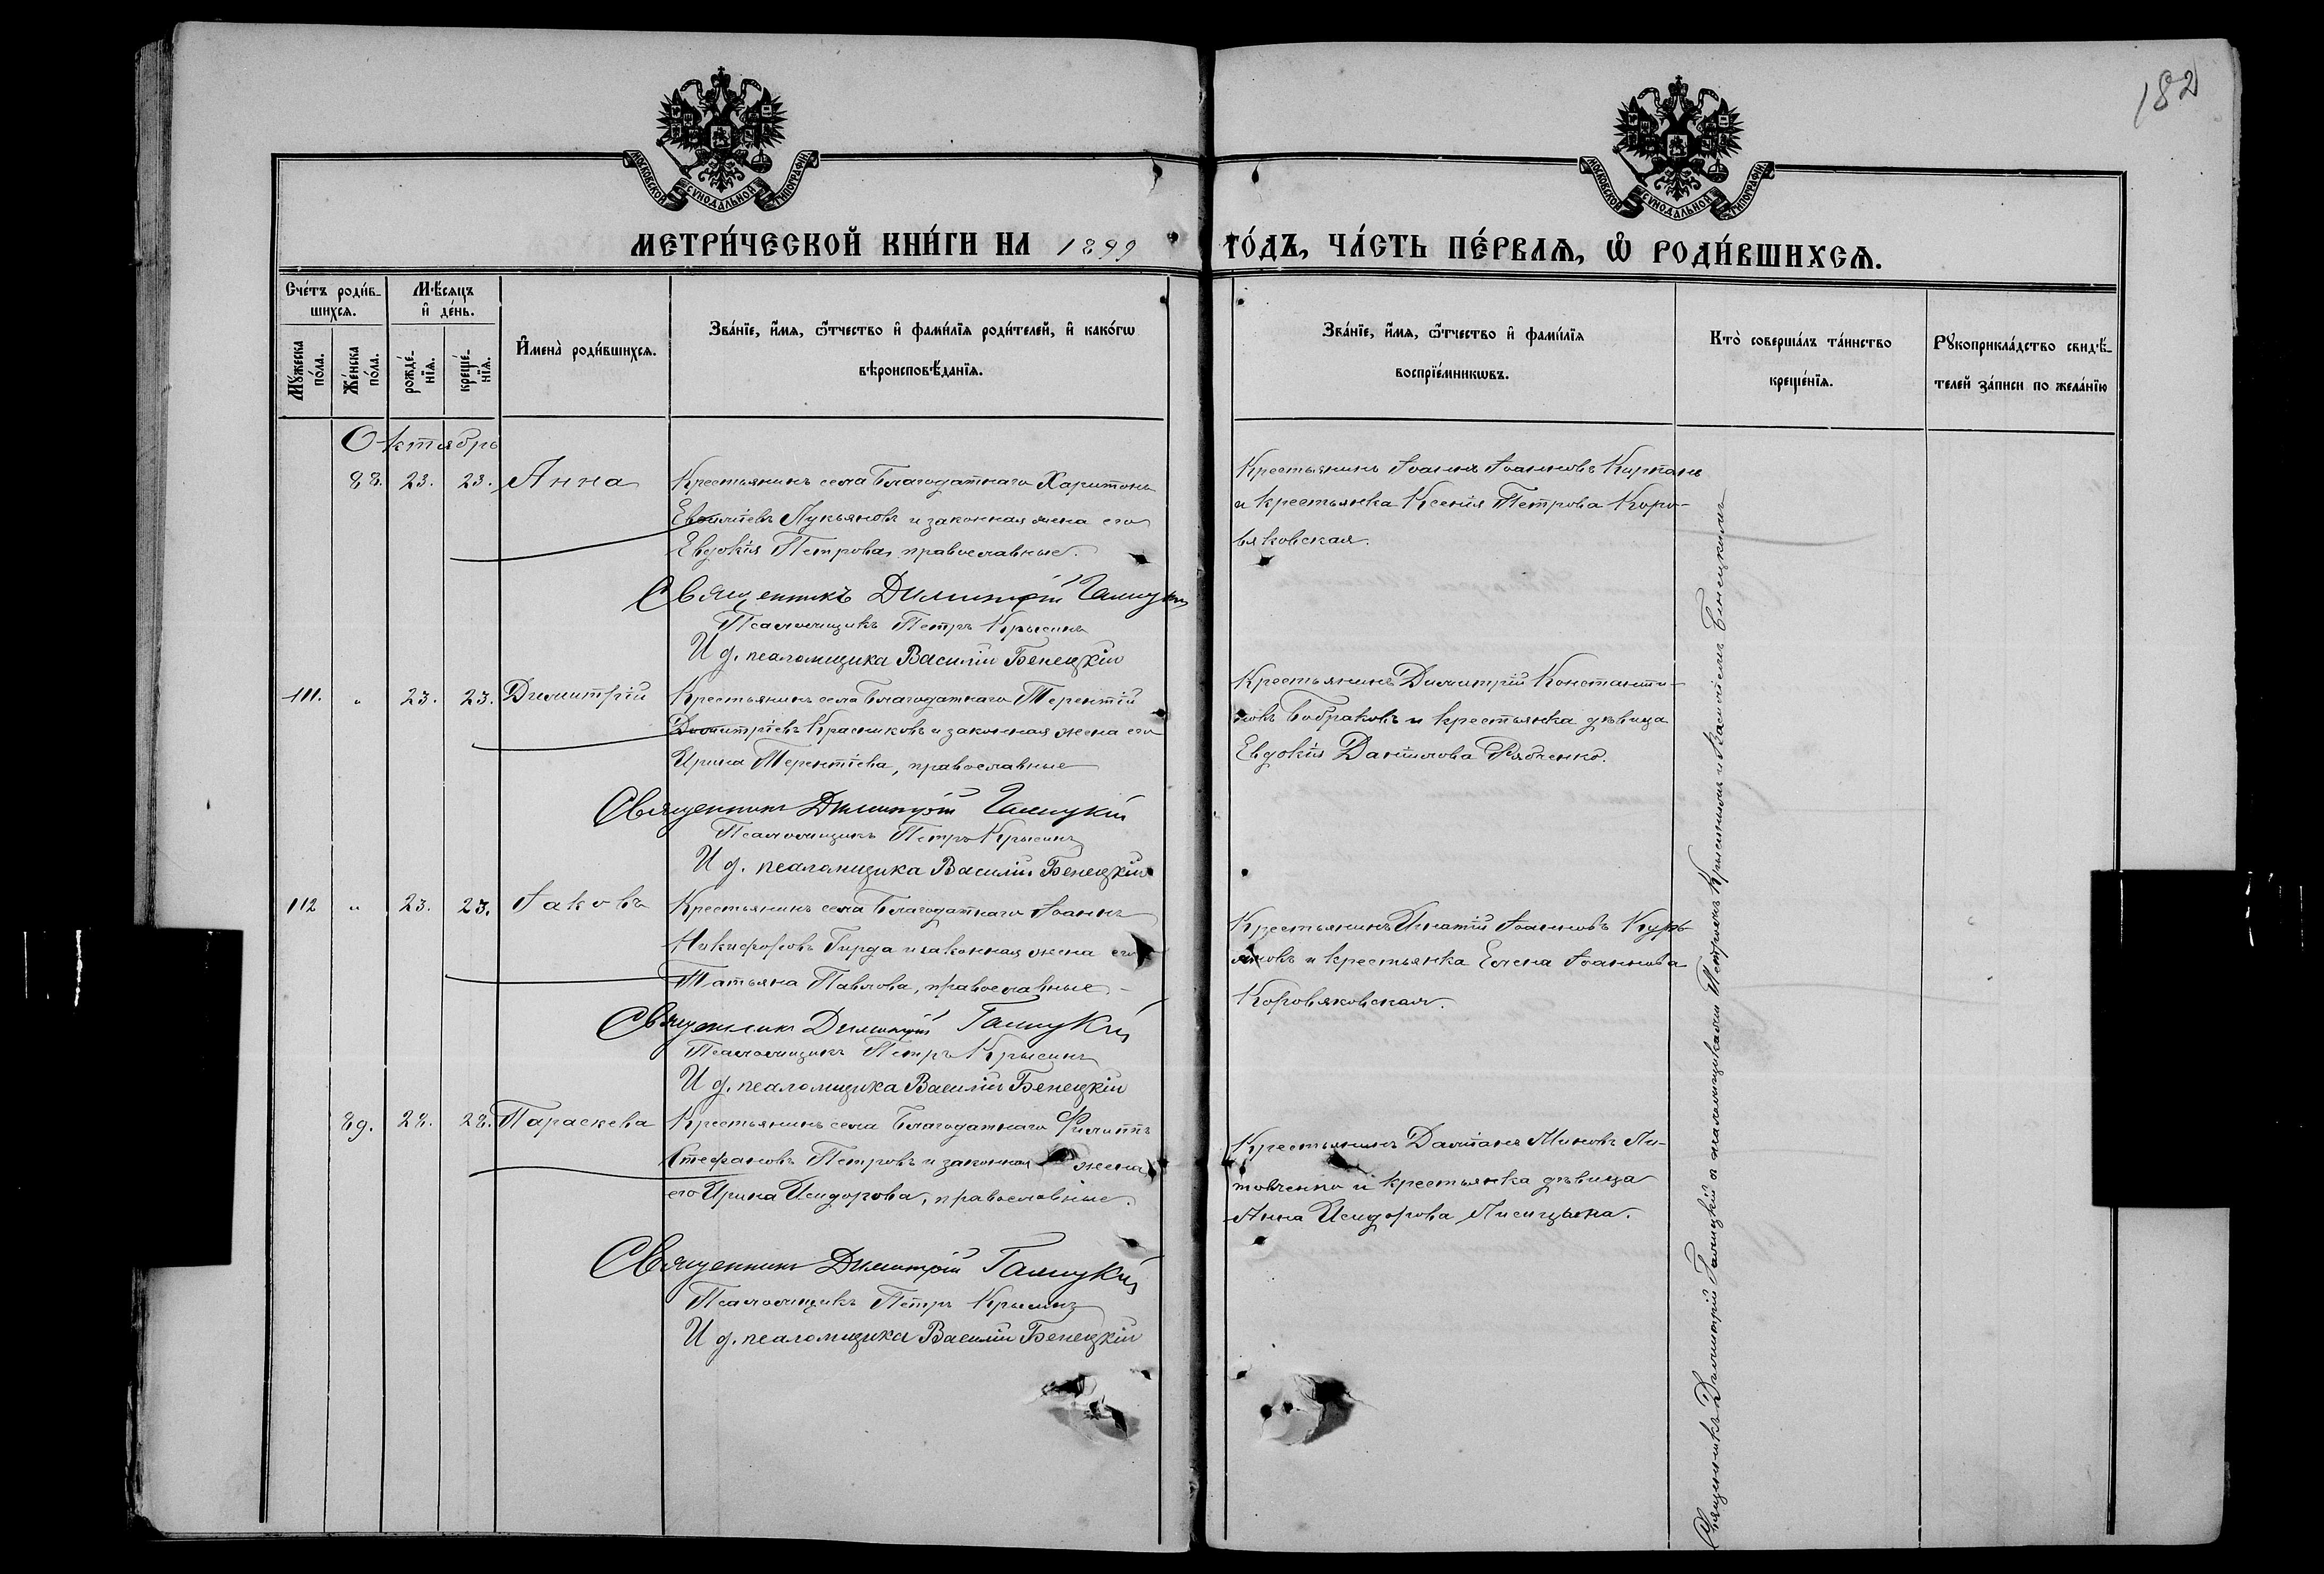 182
МОСКОВСКОЙ СѴНОДАЛЬНОЙ ТИПОГРАФІИ.
МОСКОВСКОЙ СѴНОДАЛЬНОЙ ТИПОГРАФІИ.
МЕТРИ́ЧЕСКОЙ КНИ́ГИ НА 1899 ГО́ДЪ, ЧА́СТЬ ПЕ́РВАѦ, Ѽ РОДИ́ВШИХСѦ.
Сче́тъ роди́в-
шихсѧ.
Мꙋ́жеска по́ла.
Же́нска по́ла.
Мѣ́сѧцъ
и҆ де́нь.
рожде́-
нїѧ.
креще́-
нїѧ.
И҆мена̀ роди́вшихсѧ.
Зва́нїе, и҆́мѧ, ѻ҆́тчество и҆ фами́лїѧ роди́телей, и҆ како́гѡ
вѣроисповѣ́данїѧ.
Зва́нїе, и҆́мѧ, ѻ҆́тчество и҆ фами́лїѧ
воспрїе́мникѡвъ.
Кто̀ соверша́лъ та́инство
креще́нїѧ.
Рꙋкоприкла́дство свидѣ́-
телей за́писи по жела́нїю
Октябрь
88. 23. 23. Анна
Крестьянинъ села Благодатнаго Харитонъ
Лукьяновъ и законная жена его
Евдокія Петрова, православные.
Священникъ Димитрій Галицкій
Псаломщикъ Петръ Крысинъ
И д. псаломщика Василій Бенецкій
Крестьянинъ Іоаннъ Іоанновъ
и крестьянка Ксенія Петрова Коро-
вяковская.
111. " 23. 23. Димитрій
Крестьянинъ села Благодатнаго Терентій
Димитріевъ Красниковъ и законная жена его
Ирина Терентіева, православные
Священникъ Димитрій Галицкій
Псаломщикъ Петръ Крысинъ
И д. псаломщика Василій Бенецкій
Крестьянинъ Димитрій Константи-
новъ Бобраковъ и крестьянка дѣвица
Евдокія Даніилова Рябченко.
112 " 23. 23. Іаковъ
Крестьянинъ села Благодатнаго Іоаннъ
Никифоровъ Гирда и законная жена его
Татьяна Павлова, православные
Священникъ Димитрій Галицкій
Псаломщикъ Петръ Крысинъ
И д. псаломщика Василій Бенецкій
Крестьянинъ Игнатій Іоанновъ Курь-
яновъ и крестьянка Елена Іоаннова
Коровяковская.
89. 28. 28. Параскева
Крестьянинъ села Благодатнаго Филиппъ
Стефановъ Петровъ и законная жена
его Ирина Исидорова, православные.
Священникъ Димитрій Галицкій
Псаломщикъ Петръ Крысинъ
И д. псаломщика Василій Бенецкій
Крестьянинъ Даміанъ Миновъ Ли-
товченко и крестьянка дѣвица
Анна Исидорова
Священникъ Димитрій Галицкій съ псаломщиками Петромъ Крысинымъ и Василіемъ Бенецкимъ